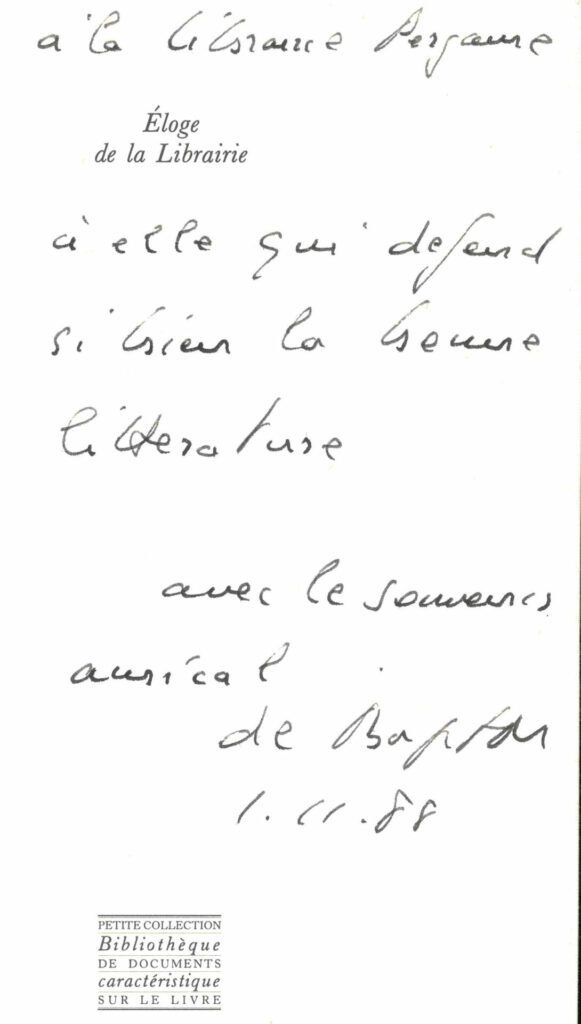 à la librairie Pergame
Éloge
de la Librairie
à elle qui défend
si bien la bonne
littérature
avec le souvenir
amical
de
1.11.88
PETITE COLLECTION
Bibliothèque
DE DOCUMENTS
caractéristique
SUR LE LIVRE